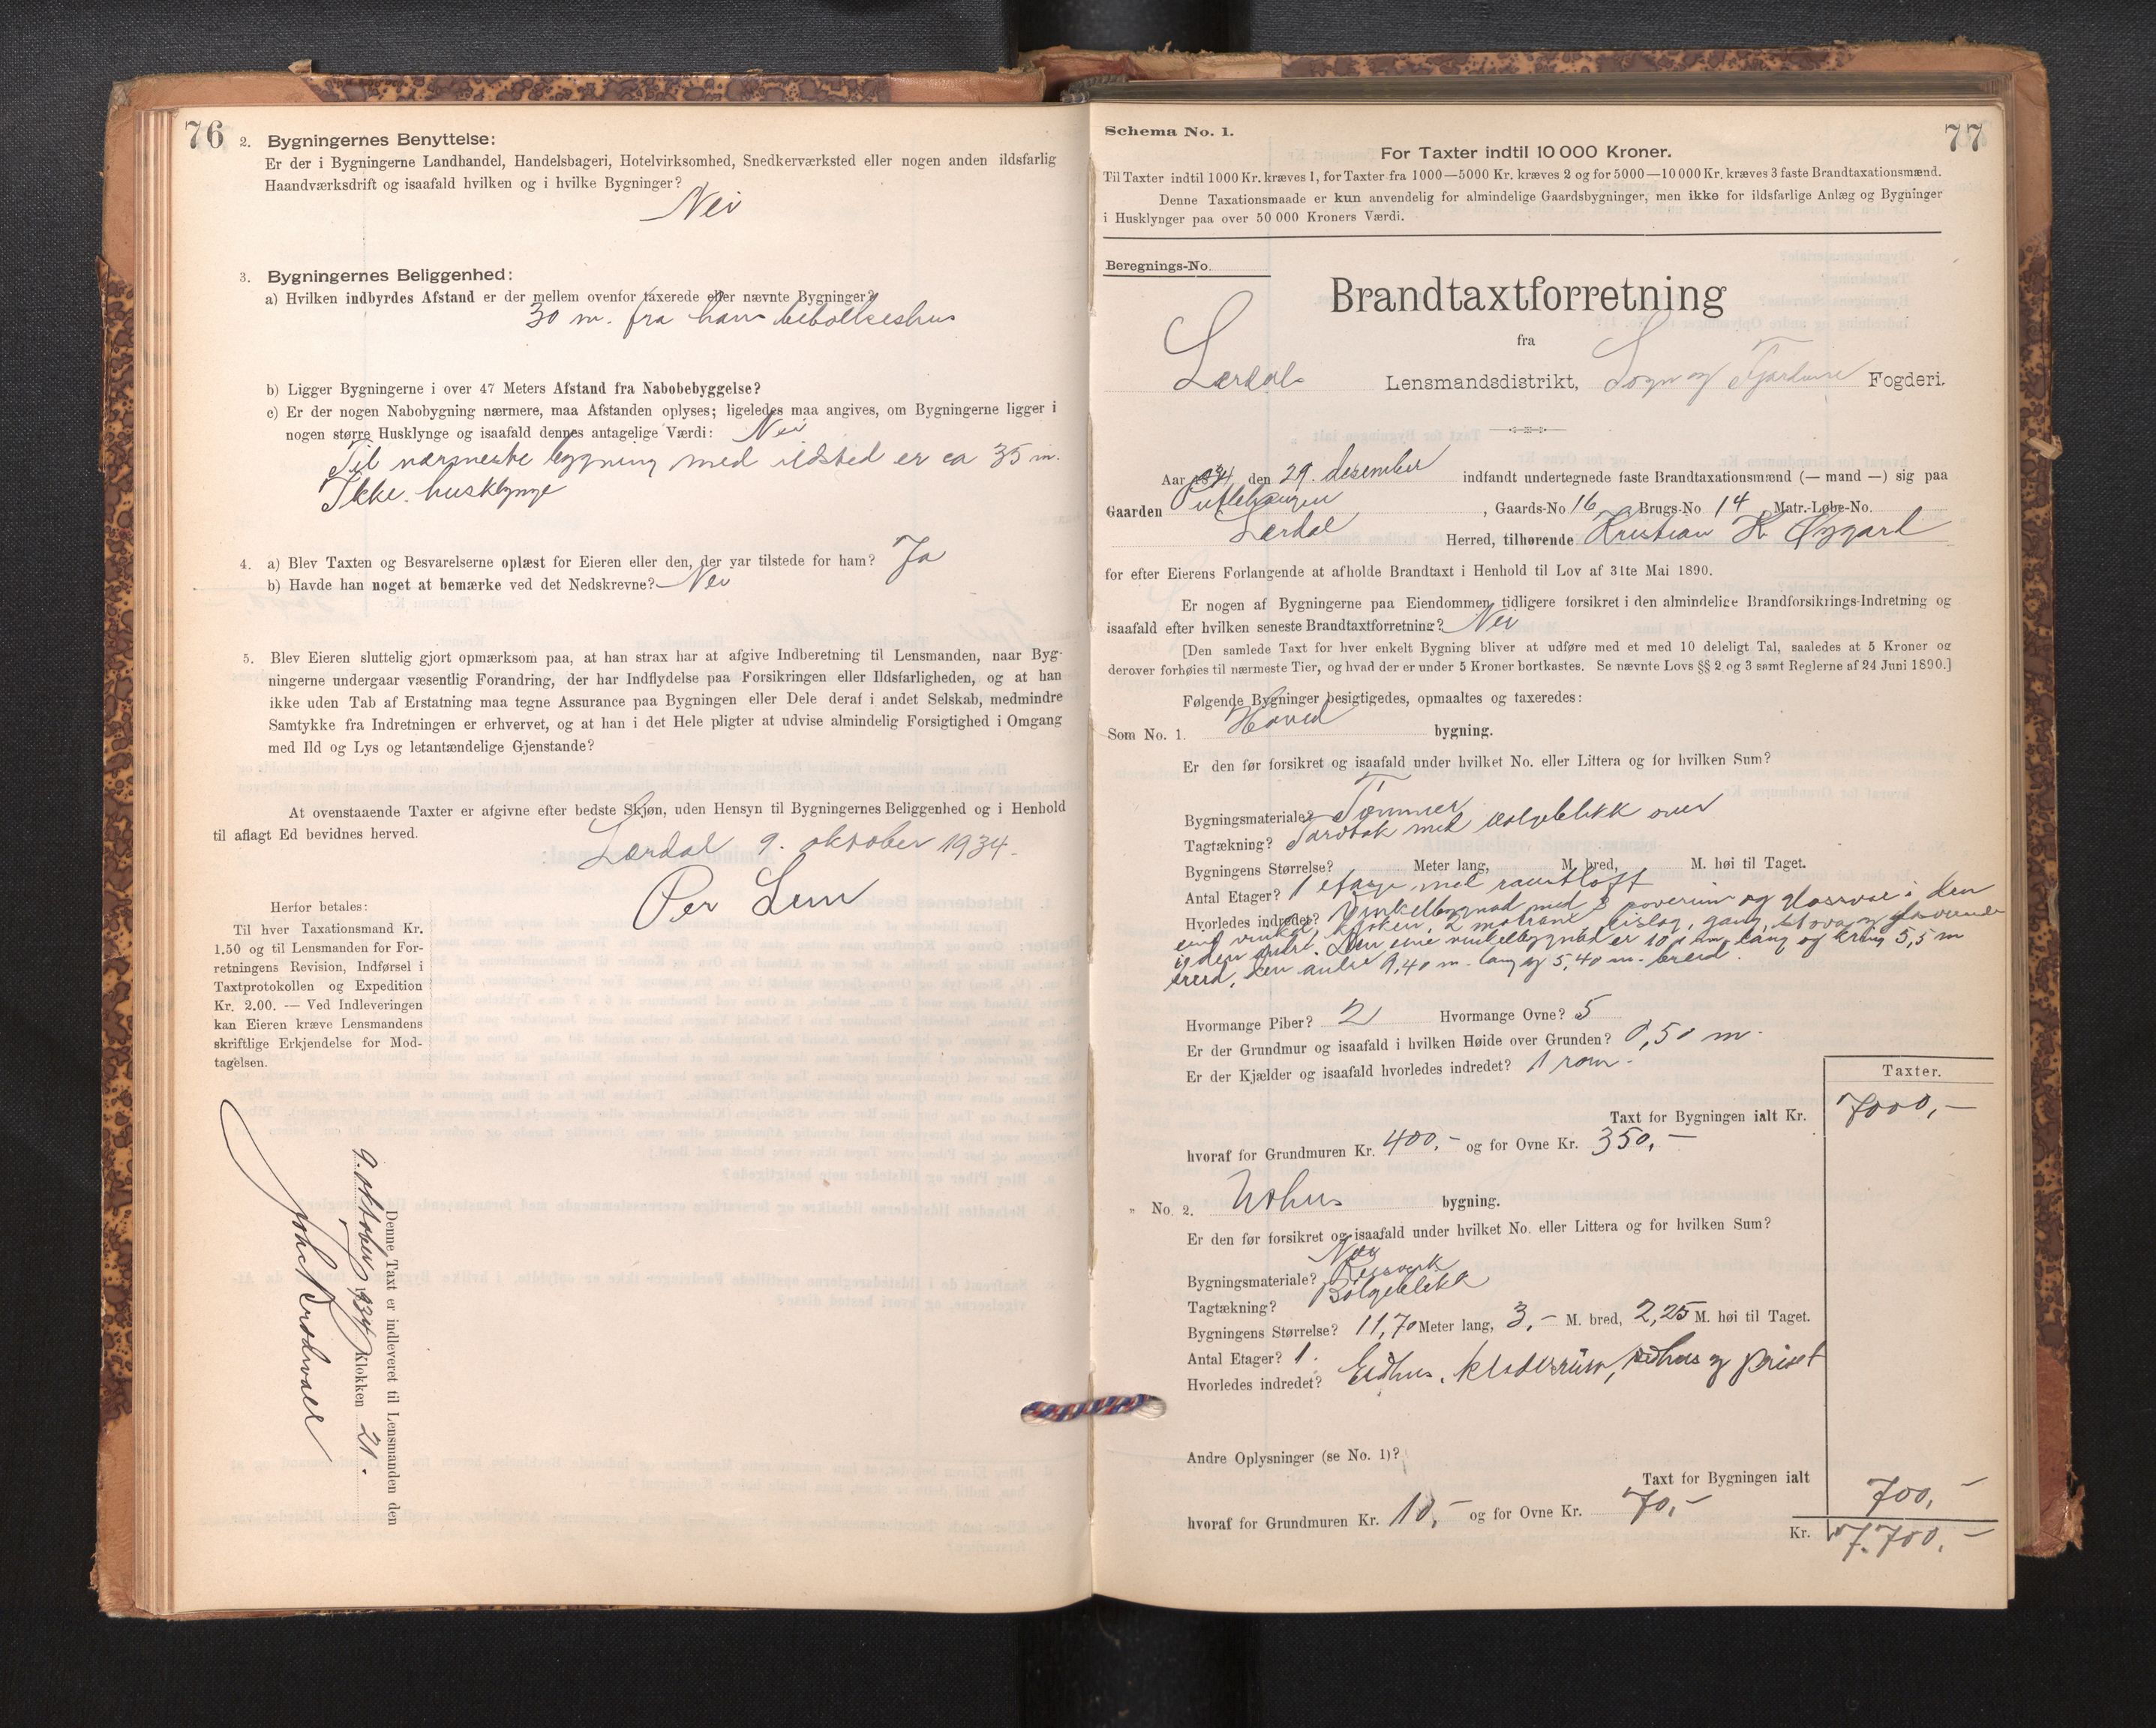 76
2. Bygningernes Benyttelse:
Er der i Bygningerne Landhandel, Handelsbageri, Hotelvirksomhed, Snedkerværksted eller nogen anden ildsfarlig
Haandværksdrift og isaafald hvilken og i hvilke Bygninger?
Nei
3. Bygningernes Beliggenhed:
a) Hvilken indbyrdes Afstand er der mellem ovenfor taxerede eller nævnte Bygninger?
30 m. fra hans beboelseshus
b) Ligger Bygningerne i over 47 Meters Afstand fra Nabobebyggelse?
c) Er der nogen Nabobygning nærmere, maa Afstanden oplyses; ligeledes maa angives, om Bygningerne ligger i
nogen større Husklynge og isaafald dennes antagelige Værdi: Nei
Til nærmeste bygning med ildsted er ca 35 m.
Ikke husklynge
4. a) Blev Taxten og Besvarelserne oplæst for Eieren eller den, der var tilstede for ham? Ja
b) Havde han noget at bemærke ved det Nedskrevne? Nei
5. Blev Eieren sluttelig gjort opmærksom paa, at han strax har at afgive Indberetning til Lensmanden, naar Byg-
ningerne undergaar væsentlig Forandring, der har Indflydelse paa Forsikringen eller Ildsfarligheden, og at han
ikke uden Tab af Erstatning maa tegne Assurance paa Bygningen eller Dele deraf i andet Selskab, medmindre
Samtykke fra Indretningen er erhvervet, og at han i det Hele pligter at udvise almindelig Forsigtighed i Omgang
med Ild og Lys og letantændelige Gjenstande?
At ovenstaaende Taxter er afgivne efter bedste Skjøn, uden Hensyn til Bygningernes Beliggenhed og i Henhold
til aflagt Ed bevidnes herved.
Lærdal 9. oktober 1934.
Per
Herfor betales:
Til hver Taxationsmand Kr.
1.50 og til Lensmanden for For-
retningens Revision, Indførsel i
Taxtprotokollen og Expedition
Kr. 2.00. — Ved Indleveringen
kan Eieren kræve Lensmandens
skriftlige Erkjendelse for Mod-
tagelsen.
Denne Taxt er indleveret til Lensmanden den
9. oktober 1934 Klokken 21.
77
Schema No. 1.
For Taxter indtil 10 000 Kroner.
Til Taxter indtil 1000 Kr. kræves 1, for Taxter fra 1000—5000 Kr. kræves 2 og for 5000—10 000 Kr. kræves 3 faste Brandtaxationsmænd.
Denne Taxationsmaade er kun anvendelig for almindelige Gaardsbygninger, men ikke for ildsfarlige Anlæg og Bygninger
i Husklynger paa over 50 000 Kroners Værdi.
Beregnings-No.
Brandtaxtforretning
fra
Lærdal Lensmandsdistrikt, Sogn og Fjordane Fogderi.
Aar 1934, den 29. desember indfandt undertegnede faste Brandtaxationsmænd (— mand —) sig paa
Gaarden , Gaards-No 16, Brugs-No 14 Matr.-Løbe-No.
Lærdal Herred, tilhørende Kristian K Øygard
for efter Eierens Forlangende at afholde Brandtaxt i Henhold til Lov af 31te Mai 1890.
Er nogen af Bygningerne paa Eiendommen tidligere forsikret i den almindelige Brandforsikrings-Indretning og
isaafald efter hvilken seneste Brandtaxtforretning? Nei
[Den samlede Taxt for hver enkelt Bygning bliver at udføre med et med 10 deleligt Tal, saaledes at 5 Kroner og
derover forhøies til nærmeste Tier, og hvad der er under 5 Kroner bortkastes. Se nævnte Lovs §§ 2 og 3 samt Reglerne af 24 Juni 1890.]
Følgende Bygninger besigtigedes, opmaaltes og taxeredes:
Som No. 1. Hoved bygning.
Er den før forsikret og isaafald under hvilket No. eller Littera og for hvilken Sum?
Bygningsmateriale? Tømmer
Tagtækning? Torvtak med bølgeblikk over
Bygningens Størrelse? Meter lang, M. bred, M. høi til Taget.
Antal Etager? 1 etasje med raustloft
Hvorledes indredet? Vinkelbygnad med 3 soverum og glassvae i den
eine vinkel, kjøken, 2 matrom, bislag, gang, stova og glasveranda
i den andre. Den eine vinkelbygnad er 10,1 m. lang og kring 5,5 m
breid, den andre 9,40 m. lang og 5,40 m. breid.
Hvormange Piber? 2 Hvormange Ovne? 5
Er der Grundmur og isaafald i hvilken Høide over Grunden? 0,50 m.
Er der Kjælder og isaafald hvorledes indredet? 1 rom.
Taxter.
Taxt for Bygningen ialt Kr. 7000,-
hvoraf for Grundmuren Kr. 400,- og for Ovne Kr. 350,-
" No. 2. Uthus bygning.
Er den før forsikret og isaafald under hvilket No. eller Littera og for hvilken Sum?
Nei
Bygningsmateriale? Reisverk
Tagtækning? Bølgeblikk
Bygningens Størrelse? 11,70 Meter lang, 3,- M. bred, 2,25 M. høi til Taget.
Antal Etager? 1.
Hvorledes indredet? Eldhus, kloderum, vedhus og privet
Andre Oplysninger (se No. 1)?
Taxt for Bygningen ialt 700,-
hvoraf for Grundmuren Kr. 10,- og for Ovne Kr. 70,-
Kr. 7.700,-